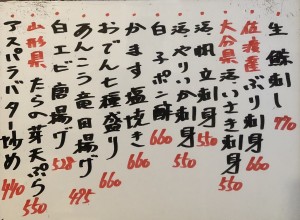 生鯨刺し 770
佐渡産ぶり刺身 660
大分県活いさき刺身 550
活帆立刺身 550
活やりいか刺身 550
白子ポン酢 660
かます塩焼き 660
おでん七種盛り 660
あんこう竜田揚げ 495
白エビ唐揚げ 528
山形県たらの芽天ぷら 550
アスパラバター炒め 440